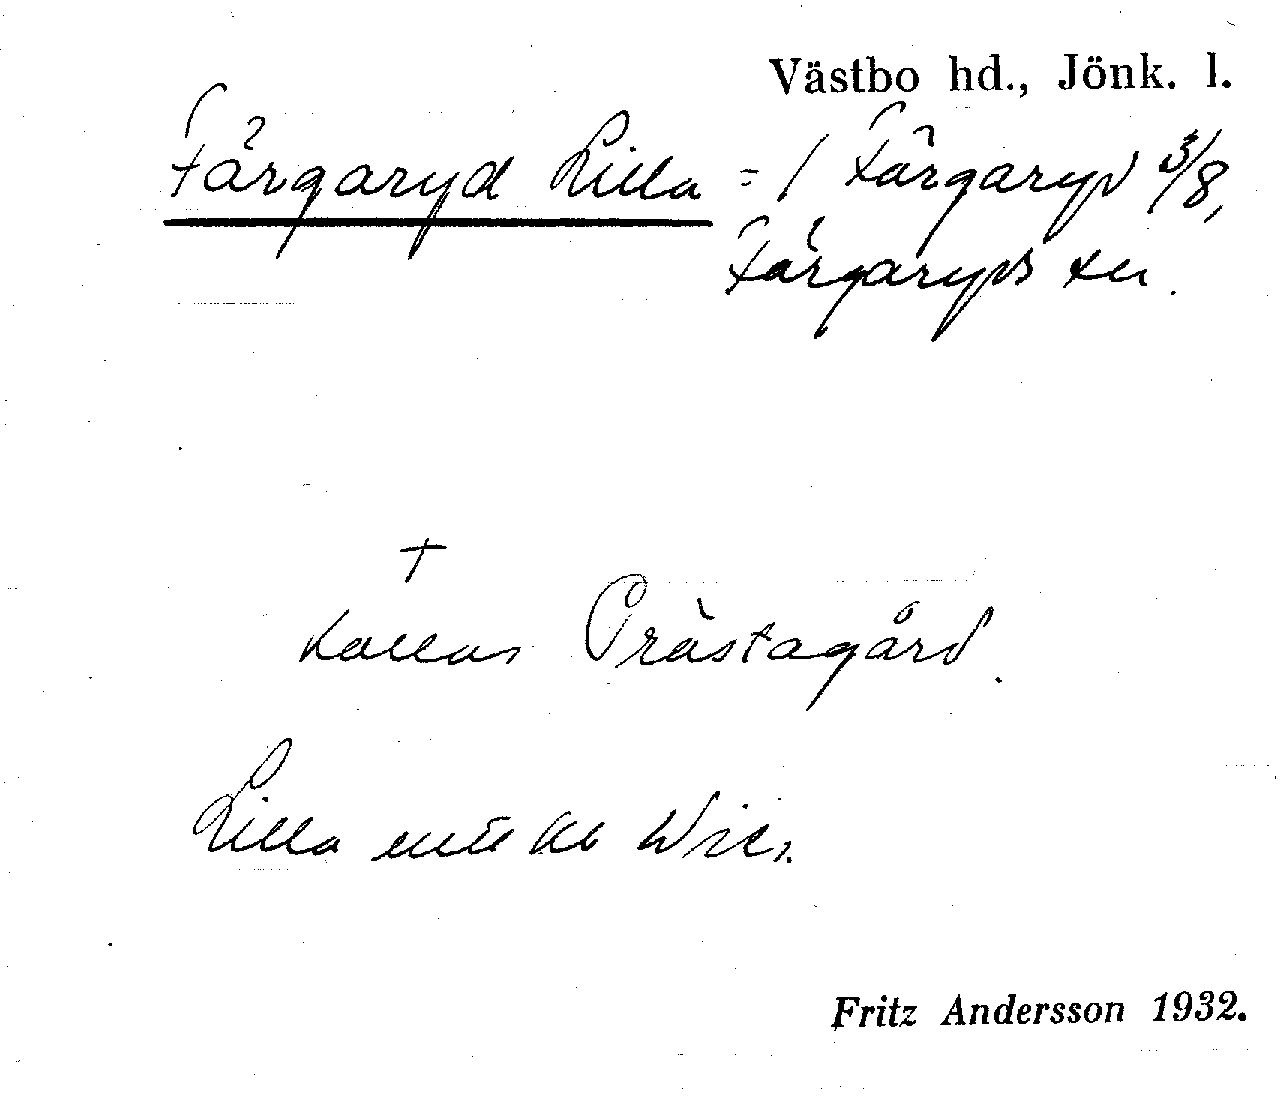 Västbo hd., Jönk. l.
Färgaryd Lilla = 1 Färgaryd 3/8,
Färgaryds sn.
+
kallas Prästagård.
Lilla
Fritz Andersson 1932.